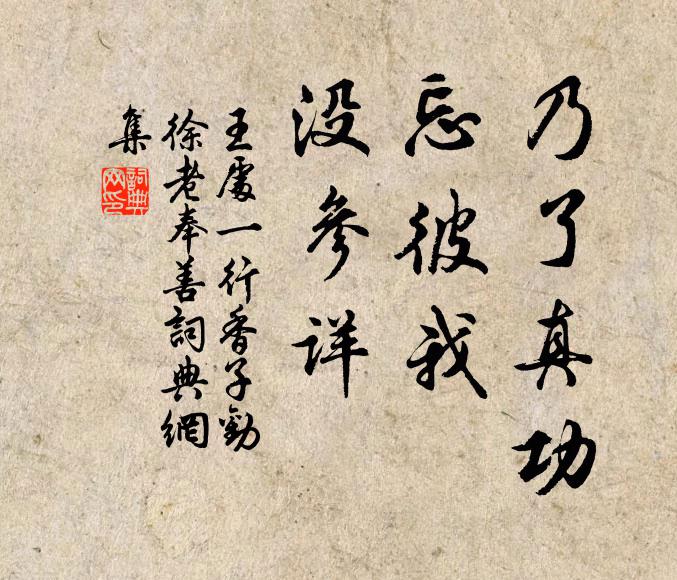 乃了真功
忘彼我
没參详
王處一行香子勸
徐老奉善詞典網
集
詞典
网印